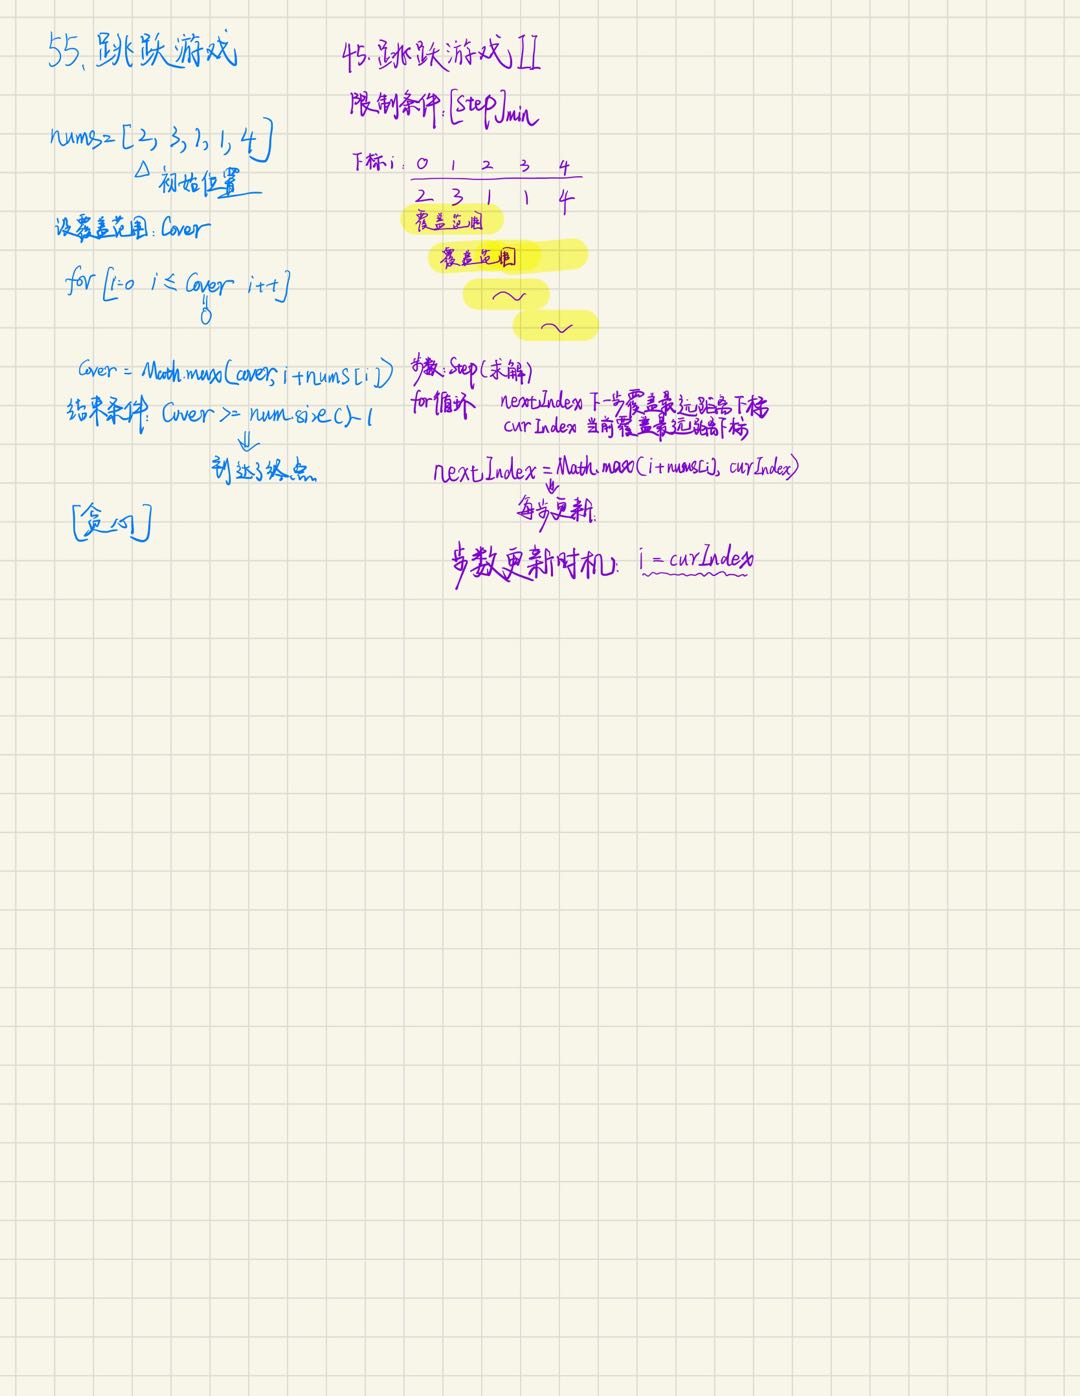 55. 跳跃游戏
nums=[2, 3, 1, 1, 4]
△ 初始位置
设覆盖范围: Cover
for [i=0 i ≤ Cover i++]
0
Cover = Math.max(cover, i+nums[i])
结束条件: Cover >= num.size()-1
⇓
到达了终点
[贪心]
45. 跳跃游戏 II
限制条件: [Step]min
下标i: 0 1 2 3 4
2 3 1 1 4
覆盖范围
覆盖范围
~
~
步数: Step (求解)
for循环 nextIndex 下一步覆盖最远距离下标
curIndex 当前覆盖最远距离下标
nextIndex = Math.max(i+nums[i], curIndex)
↓
每步更新.
步数更新时机: i = curIndex